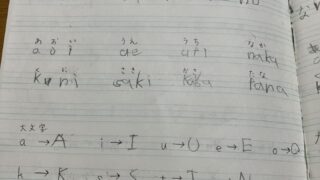 あ お い うえ うち なか
aoi ue uti naka
くに さき かさ たな
kuni saki kasa tana
大文字
a → A i → I u → U e → E o → O
k → K s → S t → T